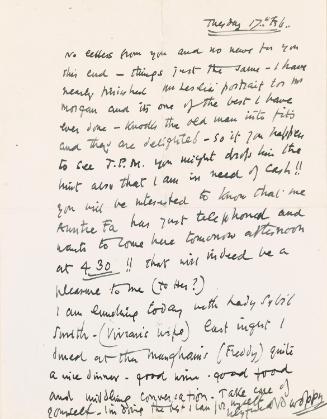 Tuesday 17th Feb.
No letters from you and no news for you
this end - things just the same - I have
nearly finished Mr Leslie's portrait for Mr
Morgan and its one of the best I have
ever done - knocks the old man into fits
and they are delighted - so if you happen
to see J.P.M. you might drop him the
hint also that I am in need of cash!!
You will be interested to know that
Auntie Fa has just telephoned and
wants to come here tomorrow afternoon
at 4.30 !! that will indeed be a
pleasure to me (to Her?)
I am lunching today with Lady Sybil
Smith - (Vivian's wife) last night I
dined at the Manghams (Freddy) quite
a nice dinner - good wine - good food
and middling conversation - Take care of
yourself - I'm doing the best I can for myself